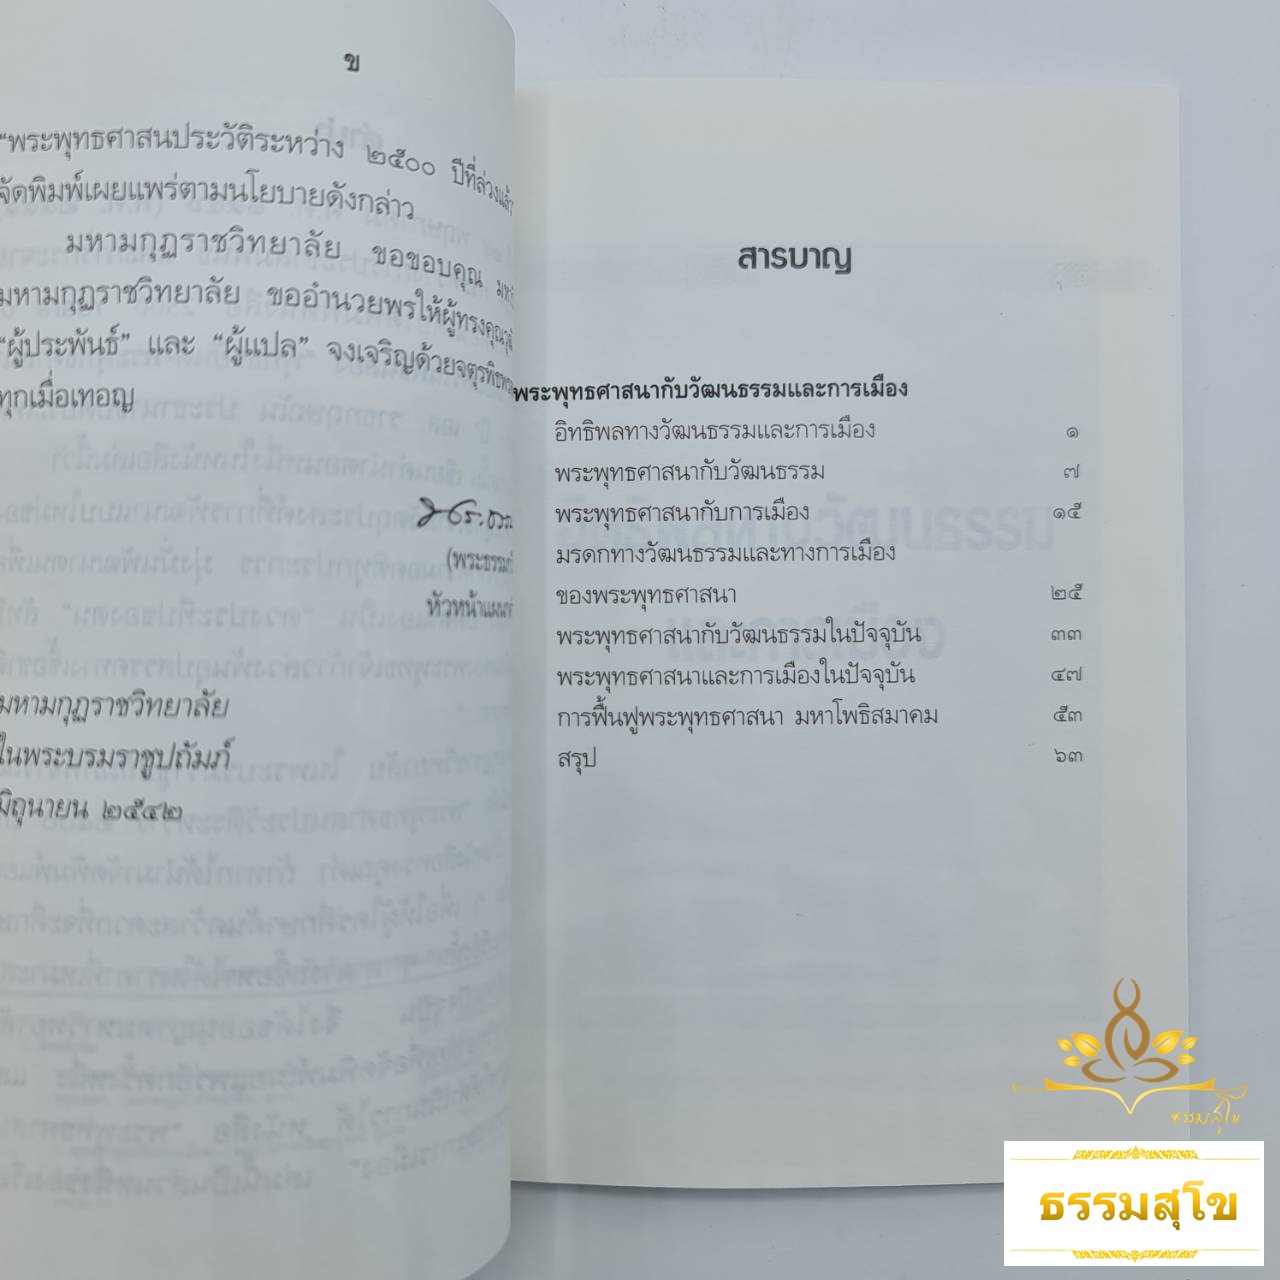 ข
“พระพุทธศาสนประวัติระหว่าง ๒๕๐๐ ปีที่ล่วงแล้ว
จัดพิมพ์เผยแพร่ตามนโยบายดังกล่าว
มหามกุฏราชวิทยาลัย ขอขอบคุณ
มหามกุฏราชวิทยาลัย ขออำนวยพรให้ผู้ทรงคุณวุฒิ
“ผู้ประพันธ์” และ “ผู้แปล” จงเจริญด้วยจตุรพิธพร
ทุกเมื่อเทอญ
(พระธรรม
หัวหน้าแผนก
มหามกุฏราชวิทยาลัย
ในพระบรมราชูปถัมภ์
มิถุนายน ๒๕๔๒
สารบาญ
พระพุทธศาสนากับวัฒนธรรมและการเมือง
อิทธิพลทางวัฒนธรรมและการเมือง ๑
พระพุทธศาสนากับวัฒนธรรม ๗
พระพุทธศาสนากับการเมือง ๑๕
มรดกทางวัฒนธรรมและทางการเมือง
ของพระพุทธศาสนา ๒๕
พระพุทธศาสนากับวัฒนธรรมในปัจจุบัน ๓๓
พระพุทธศาสนาและการเมืองในปัจจุบัน ๔๗
การฟื้นฟูพระพุทธศาสนา มหาโพธิสมาคม ๕๓
สรุป ๖๓
ธรรมสุโข
ธรรมสุโข